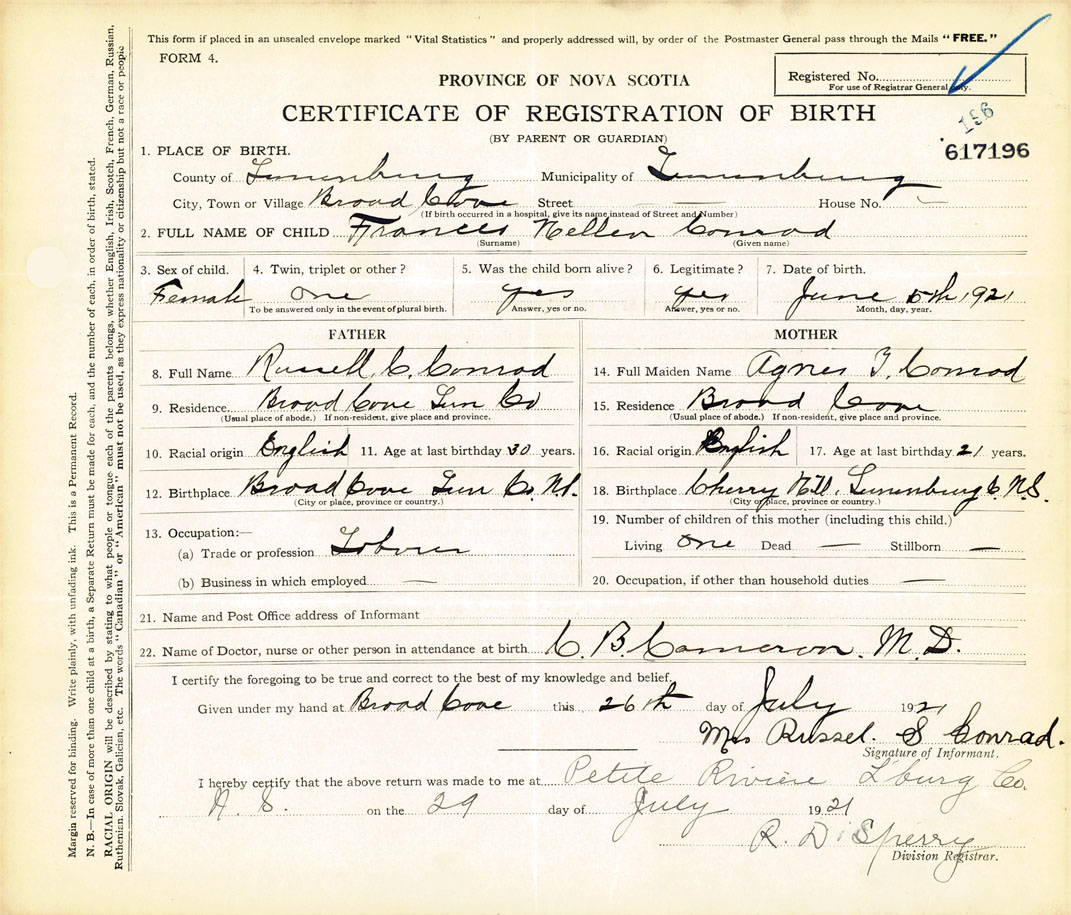 This form if placed in an unsealed envelope marked "Vital Statistics" and properly addressed will, by order of the Postmaster General pass through the Mails "FREE."
FORM 4.
Registered No.
For use of Registrar General only.
PROVINCE OF NOVA SCOTIA
CERTIFICATE OF REGISTRATION OF BIRTH
(BY PARENT OR GUARDIAN)
196
617196
1. PLACE OF BIRTH.
County of Lunenburg Municipality of Lunenburg
City, Town or Village Broad Cove Street — House No. —
(If birth occurred in a hospital, give its name instead of Street and Number)
2. FULL NAME OF CHILD Frances Hellen Conrad
(Surname) (Given name)
3. Sex of child. 4. Twin, triplet or other? 5. Was the child born alive? 6. Legitimate? 7. Date of birth.
Female one yes yes June 5th 1921
To be answered only in the event of plural birth. Answer, yes or no. Answer, yes or no. Month, day, year.
FATHER MOTHER
8. Full Name Russell C. Conrad 14. Full Maiden Name Agnes Conrad
9. Residence Broad Cove Lun Co 15. Residence Broad Cove
(Usual place of abode.) If non-resident, give place and province. (Usual place of abode.) If non-resident, give place and province.
10. Racial origin English 11. Age at last birthday 30 years. 16. Racial origin English 17. Age at last birthday 21 years.
12. Birthplace Broad Cove Lun Co. N.S. 18. Birthplace Cherry Hill, Lunenburg C N.S.
(City or place, province or country.) (City or place, province or country.)
13. Occupation:— 19. Number of children of this mother (including this child.)
(a) Trade or profession Laborer Living One Dead — Stillborn —
(b) Business in which employed — 20. Occupation, if other than household duties —
21. Name and Post Office address of Informant
22. Name of Doctor, nurse or other person in attendance at birth C. B. Cameron. M.D.
I certify the foregoing to be true and correct to the best of my knowledge and belief.
Given under my hand at Broad Cove this 26th day of July 1921
Mrs Russel. S Conrad.
Signature of Informant.
I hereby certify that the above return was made to me at Petite Riviere L'burg Co.
N. S. on the 29 day of July 1921
R. D. Sperry
Division Registrar.
Margin reserved for binding. Write plainly, with unfading ink. This is a Permanent Record.
N. B.—In case of more than one child at a birth, a Separate Return must be made for each, and the number of each, in order of birth, stated.
RACIAL ORIGIN will be described by stating to what people or tongue each of the parents belongs, whether English, Irish, Scotch, French, German, Russian,
Ruthenian, Slovak, Galician, etc. The words "Canadian" or "American" must not be used, as they express nationality or citizenship but not a race or people